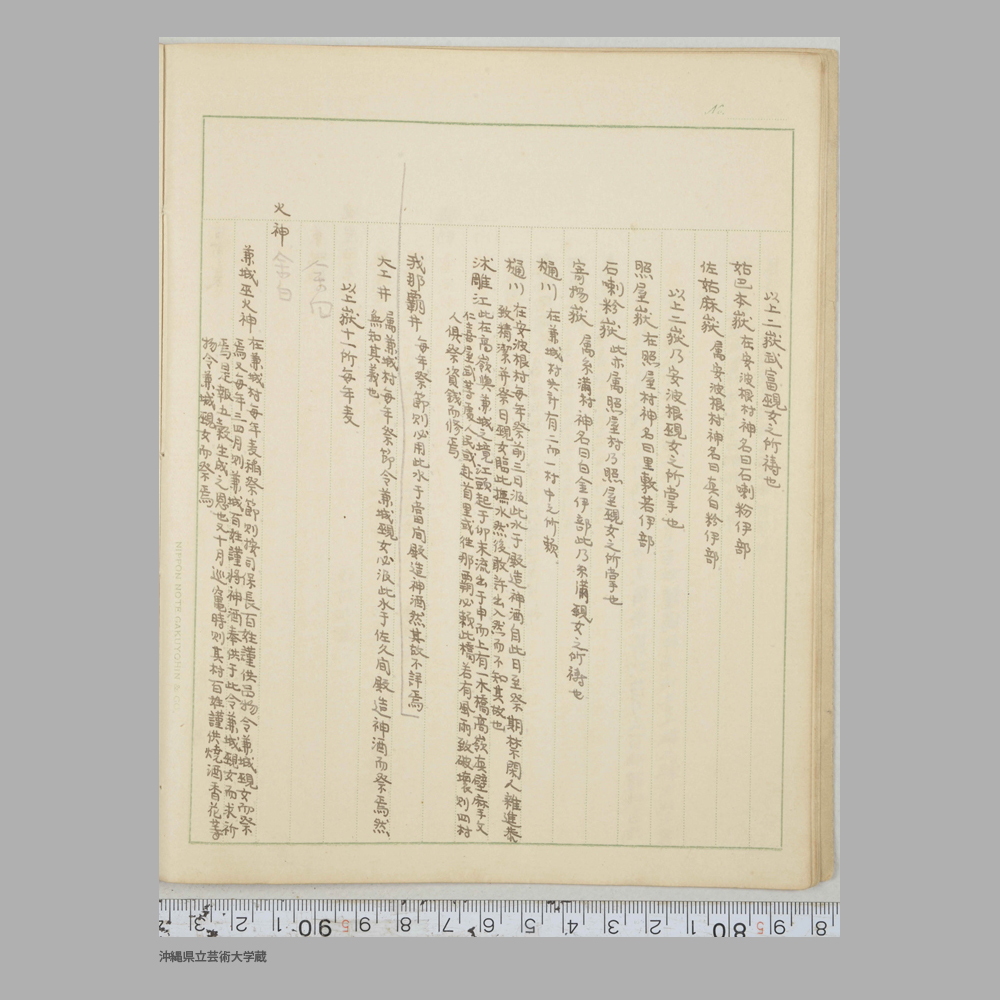 以上二嶽武富覡女之所祷也
姑巴本嶽 在安波根村神名曰石喇粉伊部
佐姑麻嶽 属安波根村神名曰真白粉伊部
以上二嶽乃安波根覡女之所掌也
照屋嶽 在照屋村神名曰里敷若伊部
石喇粉嶽 此亦属照屋村乃照屋覡女之所掌也
寄揚嶽 属糸満村神名曰白金伊部此乃糸満覡女之所祷也
樋川 在兼城村共計有二而一村中之所頼
樋川 在安波根村毎年祭前三日汲此水于殿造神酒自此日至祭期禁閑人雑進恭
致精潔并祭日覡女臨此撫水然後敢許出入然而不知其故也
沐雕江 此在高嶺與兼城之境江頭起于卯末流出于申而上有一木橋高嶺真壁摩文
仁喜屋武等處人民或赴首里或往那覇必頼此橋若有風雨致破壊則四村
人俱祭資銭而修焉
我那覇井 毎年祭節則必用此水于當間殿造神酒然其故不詳焉
大工井 属兼城村毎年祭節令兼城覡女必汲此水于佐久間殿造神酒而祭焉然
無知其義也
以上嶽十一所毎年麦
火神
兼城巫火神 在兼城村毎年麦稲祭節則按司保長百姓謹供品物令兼城覡女而祭
焉又毎年三四月則兼城百姓謹将神酒奉供于此令兼城覡女而求祈
焉是報五穀生成之恩也又十月巡竃時則其村百姓謹供焼酒香花等
物令兼城覡女而祭焉
No.
NIPPON NOTE GAKUYOHIN & CO.
3 2 1 90 5 8 7 6 5 4 3 2 1 80 5 8
沖縄県立芸術大学蔵